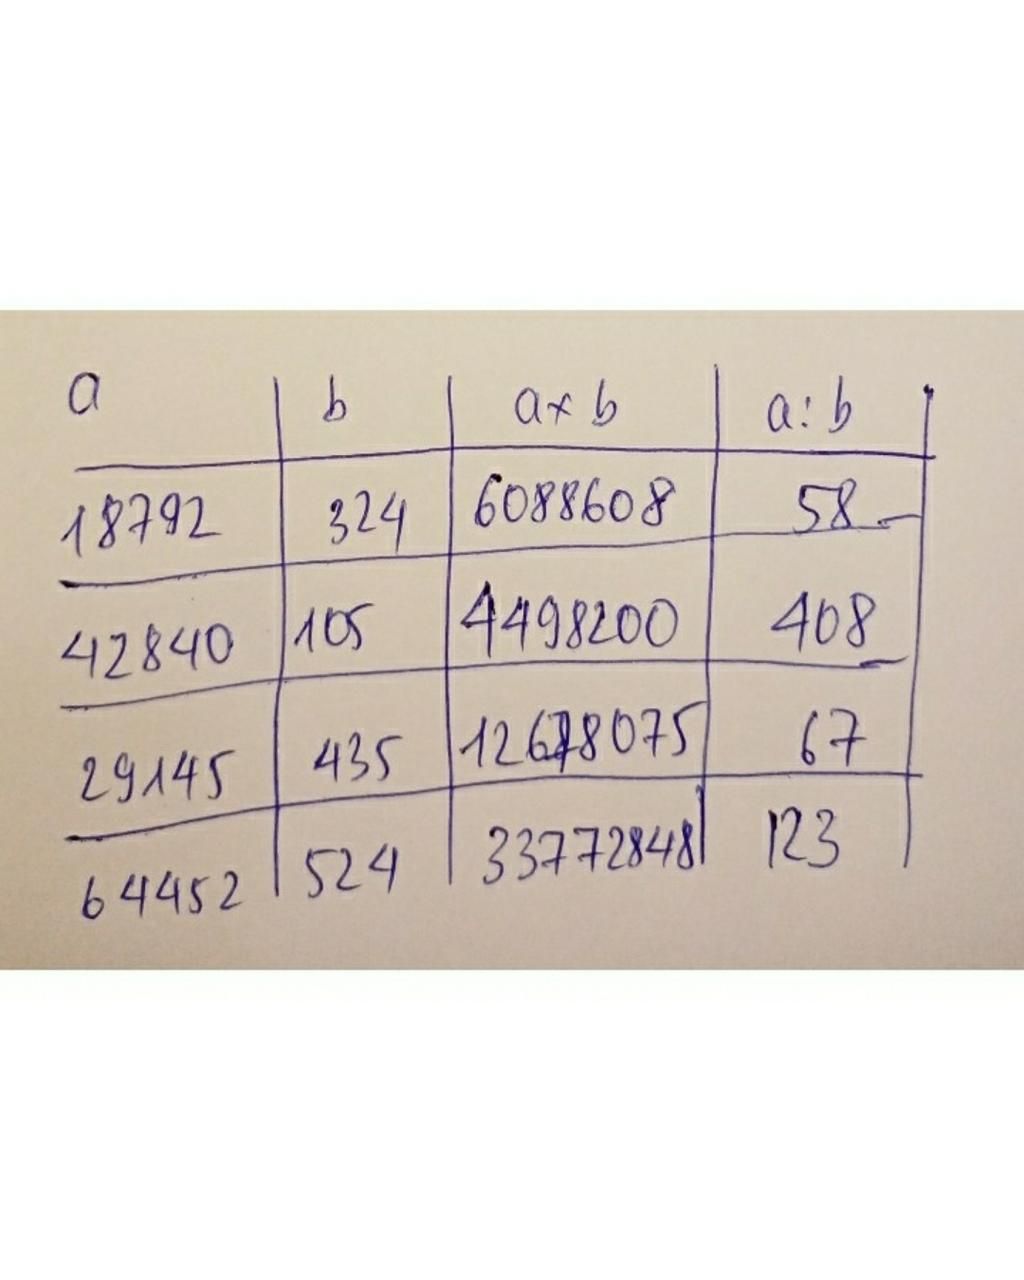 a b a x b a : b
18792 324 6088608 58
42840 105 4498200 408
29145 435 12678075 67
64452 524 33772848 123